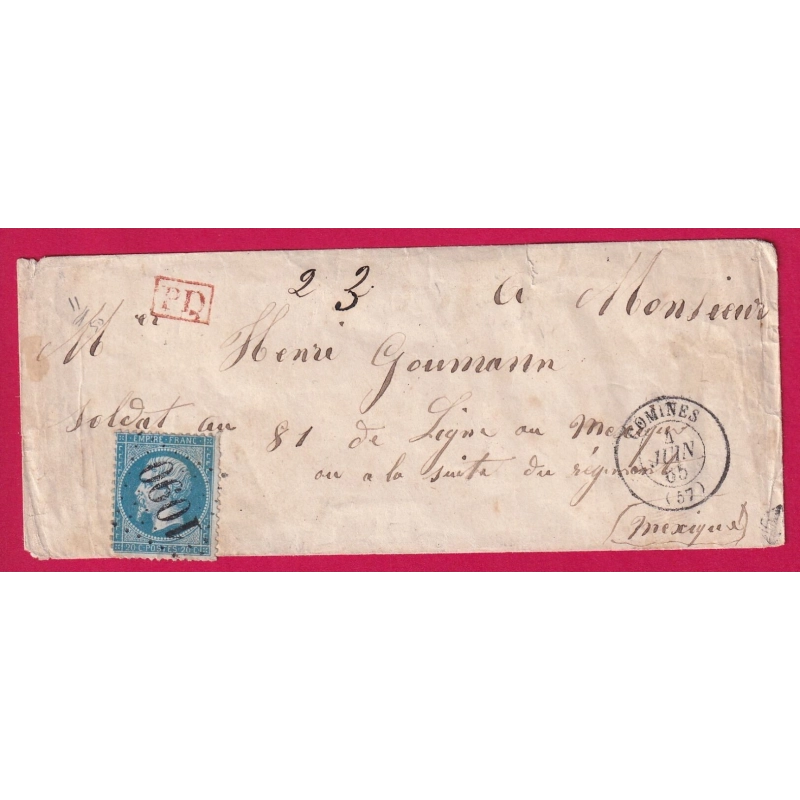 23 a Monsieur
PD
Mr Henri Goumann
soldat au 81 de Ligne au Mexique
ou a la suite du régiment
(Mexique)
COMINES
1
JUIN
65
(57)
EMPIRE FRANC
1090
20 C POSTES 20 C